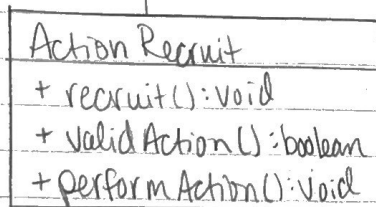 Action Recruit
+ recruit():void
+ validAction():boolean
+ performAction():void